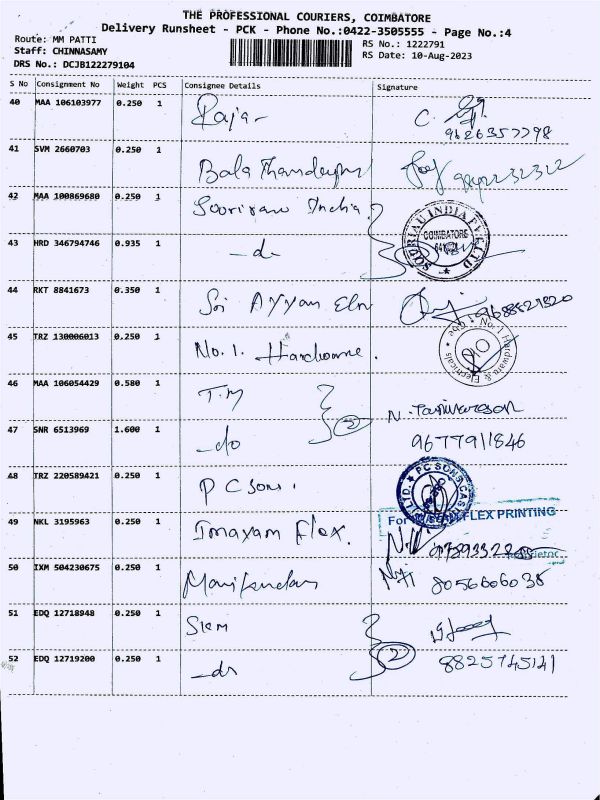 THE PROFESSIONAL COURIERS, COIMBATORE
Delivery Runsheet - PCK - Phone No.:0422-3505555 - Page No.:4
Route: MM PATTI
Staff: CHINNASAMY
DRS No.: DCJB122279104
RS No.: 1222791
RS Date: 10-Aug-2023
S No Consignment No Weight PCS Consignee Details Signature
40 MAA 106103977 0.250 1 Raja - C.
9626357798
41 SVM 2660703 0.250 1 Bala 9842232322
42 MAA 100869680 0.250 1 Souriau India
SOURIAU INDIA PVT. LTD
COIMBATORE
43 HRD 346794746 0.935 1 -do-
44 RKT 8841673 0.350 1 Sri Ayyan
45 TRZ 130006013 0.250 1 No. 1. Hardware.
No.1 Hardware & Electricals * Cbe *
46 MAA 106054429 0.580 1 T.M N.
47 SNR 6513969 1.600 1 -do 2 9677911846
48 TRZ 220589421 0.250 1 P C Sons.
PC SONS
LTD.
For FLEX PRINTING
49 NKL 3195963 0.250 1 Imayam Flex.
Proprietor
50 IXM 504230675 0.250 1 Manikandan 8056606038
51 EDQ 12718948 0.250 1 Siem
52 EDQ 12719200 0.250 1 -do 2 8825745141